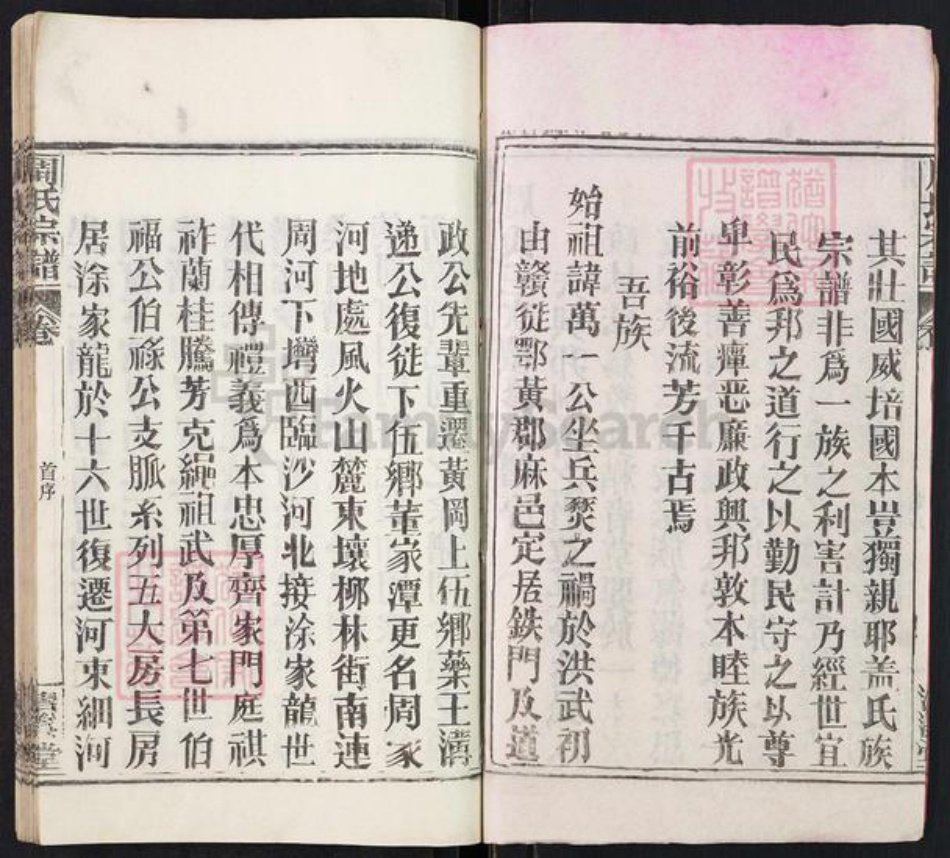 其壯國威培國本豈獨親耶盖氏族
宗譜非爲一族之利害計乃經世宜
民爲邦之道行之以勤民守之以尊
卑彰善癉恶廉政興邦敦本睦族光
前裕後流芳千古焉
吾族
始祖諱萬一公坐兵燹之禍於洪武初
由贛徙鄂黃郡麻邑定居鉄門及道
政公先輩重遷黃岡上伍鄉藥王溝
递公復徙下伍鄉董家潭更名周家
河地處风火山麓東壤柳林街南連
周河下塆西臨沙河北接涂家龍世
代相傳禮義爲本忠厚齊家門庭祺
祚蘭桂騰芳克繩祖武及第七世伯
福公伯祿公支脈系列五大房長房
居涂家龍於十六世復遷河東細河
周氏宗譜
卷
首序
堂
FamilySearch